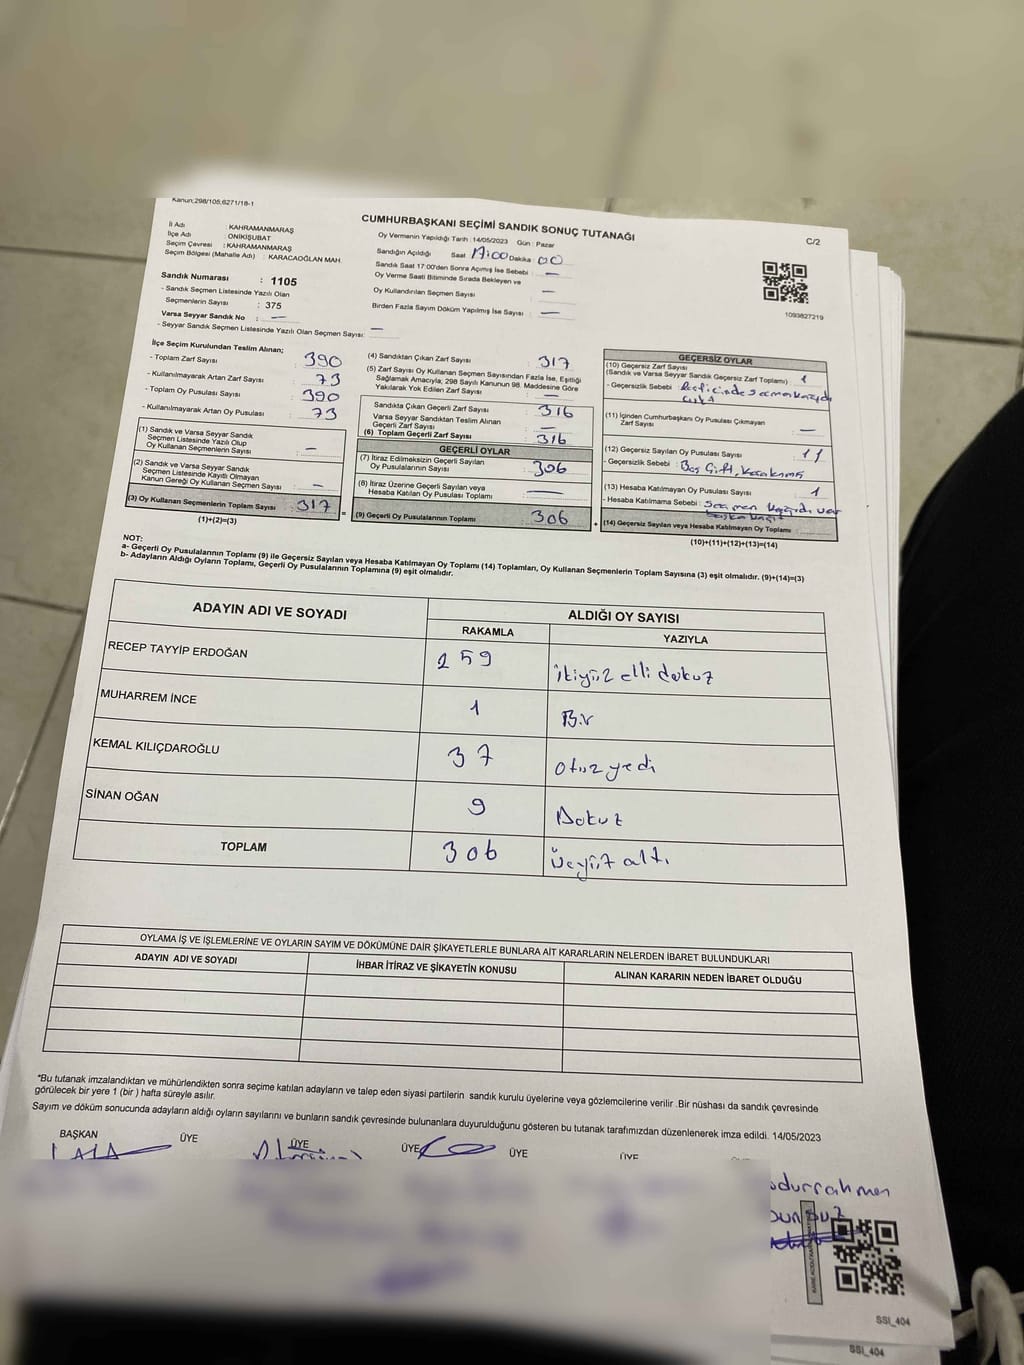 Kanun;298/105;6271/18-1
CUMHURBAŞKANI SEÇİMİ SANDIK SONUÇ TUTANAĞI
C/2
İl Adı : KAHRAMANMARAŞ
İlçe Adı : ONİKİŞUBAT
Seçim Çevresi : KAHRAMANMARAŞ
Seçim Bölgesi (Mahalle Adı) : KARACAOĞLAN MAH.
Oy Vermenin Yapıldığı Tarih : 14/05/2023 Gün : Pazar
Sandığın Açıldığı Saat Dakika : 00
Sandık Saat 17:00'den Sonra Açılmış İse Sebebi : —
Oy Verme Saati Bitiminde Sırada Bekleyen ve
Oy Kullandırılan Seçmen Sayısı : —
Birden Fazla Sayım Döküm Yapılmış İse Sayısı : —
1093827219
Sandık Numarası : 1105
- Sandık Seçmen Listesinde Yazılı Olan
Seçmenlerin Sayısı : 375
Varsa Seyyar Sandık No : —
- Seyyar Sandık Listesinde Yazılı Olan Seçmen Sayısı: —
İlçe Seçim Kurulundan Teslim Alınan;
- Toplam Zarf Sayısı : 390
- Kullanılmayarak Artan Zarf Sayısı : 73
- Toplam Oy Pusulası Sayısı : 390
- Kullanılmayarak Artan Oy Pusulası : 73
(1) Sandık ve Varsa Seyyar Sandık
Seçmen Listesinde Yazılı Olup
Oy Kullanan Seçmenlerin Sayısı : —
(2) Sandık ve Varsa Seyyar Sandık
Seçmen Listesinde Kayıtlı Olmayan
Kanun Gereği Oy Kullanan Seçmen Sayısı : —
(3) Oy Kullanan Seçmenlerin Toplam Sayısı : 317 =
(1)+(2)=(3)
(4) Sandıktan Çıkan Zarf Sayısı : 317
(5) Zarf Sayısı Oy Kullanan Seçmen Sayısından Fazla İse, Eşitliği
Sağlamak Amacıyla; 298 Sayılı Kanunun 98. Maddesine Göre
Yakılarak Yok Edilen Zarf Sayısı : —
Sandıkta Çıkan Geçerli Zarf Sayısı : 316
Varsa Seyyar Sandıktan Teslim Alınan
Geçerli Zarf Sayısı : —
(6) Toplam Geçerli Zarf Sayısı : 316
GEÇERLİ OYLAR
(7) İtiraz Edilmeksizin Geçerli Sayılan
Oy Pusulalarının Sayısı : 306
(8) İtiraz Üzerine Geçerli Sayılan veya
Hesaba Katılan Oy Pusulası Toplamı : —
(9) Geçerli Oy Pusulalarının Toplamı : 306 +
GEÇERSİZ OYLAR
(10) Geçersiz Zarf Sayısı
(Sandık ve Varsa Seyyar Sandık Geçersiz Zarf Toplamı) : 1
- Geçersizlik Sebebi :
(11) İçinden Cumhurbaşkanı Oy Pusulası Çıkmayan
Zarf Sayısı : —
(12) Geçersiz Sayılan Oy Pusulası Sayısı : 11
- Geçersizlik Sebebi : Boş Çift,
(13) Hesaba Katılmayan Oy Pusulası Sayısı : 1
- Hesaba Katılmama Sebebi : Seçmen
(14) Geçersiz Sayılan veya Hesaba Katılmayan Oy Toplamı
(10)+(11)+(12)+(13)=(14)
NOT:
a- Geçerli Oy Pusulalarının Toplamı (9) ile Geçersiz Sayılan veya Hesaba Katılmayan Oy Toplamı (14) Toplamları, Oy Kullanan Seçmenlerin Toplam Sayısına (3) eşit olmalıdır. (9)+(14)=(3)
b- Adayların Aldığı Oyların Toplamı, Geçerli Oy Pusulalarının Toplamına (9) eşit olmalıdır.
ADAYIN ADI VE SOYADI
ALDIĞI OY SAYISI
RAKAMLA YAZIYLA
RECEP TAYYİP ERDOĞAN 259 ikiyüz elli dokuz
MUHARREM İNCE 1 Bir
KEMAL KILIÇDAROĞLU 37 otuz yedi
SİNAN OĞAN 9 Dokuz
TOPLAM 306 üçyüz altı
OYLAMA İŞ VE İŞLEMLERİNE VE OYLARIN SAYIM VE DÖKÜMÜNE DAİR ŞİKAYETLERLE BUNLARA AİT KARARLARIN NELERDEN İBARET BULUNDUKLARI
ADAYIN ADI VE SOYADI İHBAR İTİRAZ VE ŞİKAYETİN KONUSU ALINAN KARARIN NEDEN İBARET OLDUĞU
*Bu tutanak imzalandıktan ve mühürlendikten sonra seçime katılan adayların ve talep eden siyasi partilerin sandık kurulu üyelerine veya gözlemcilerine verilir .Bir nüshası da sandık çevresinde
görülecek bir yere 1 (bir ) hafta süreyle asılır.
Sayım ve döküm sonucunda adayların aldığı oyların sayılarını ve bunların sandık çevresinde bulunanlara duyurulduğunu gösteren bu tutanak tarafımızdan düzenlenerek imza edildi. 14/05/2023
BAŞKAN ÜYE ÜYE ÜYE ÜYE ÜYE
SSI_404
SSI_404